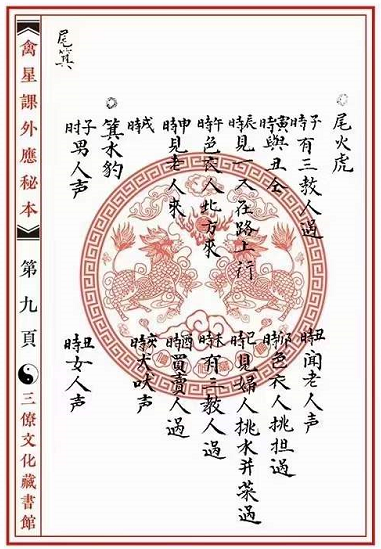 尾火虎
子時有三教人過
丑時聞老人声
寅時與丑仝
卯時色衣人挑担過
辰時見一人在路上行
巳時見婦人挑水并菜過
午時色衣人北方來
未時有三教人過
申時見老人來
酉時買賣人過
戌時
亥時犬吠声
箕水豹
子时男人声
丑時女人声
尾箕
禽星課外應秘本
第九頁
三僚文化藏書館